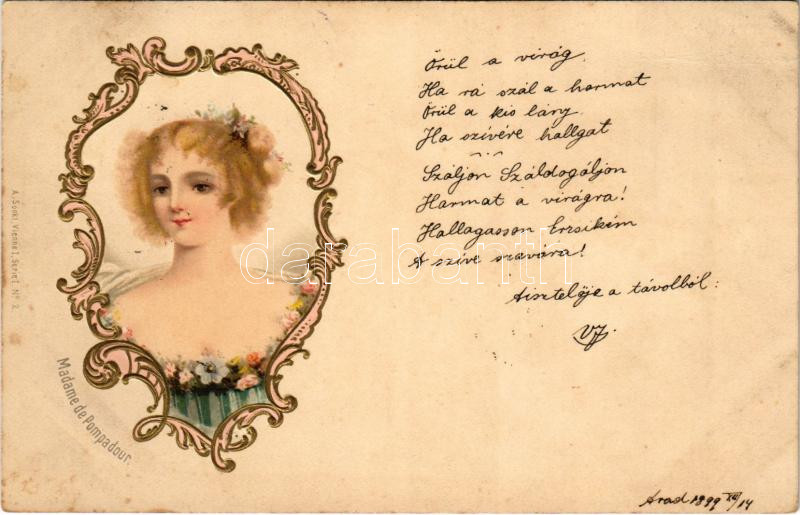 Örül a virág
Ha rá szál a harmat
Örül a kis lány
Ha szívére hallgat
Száljon Száldogáljon
Harmat a virágra!
Hallagasson Erzsikém
A szíve szavára!
Tisztelője a távolból:
VJ.
Arad 1899 XII/14
Madame de Pompadour.
A. Sockl, Vienne I, Serie I. Nº 2.
darabanth